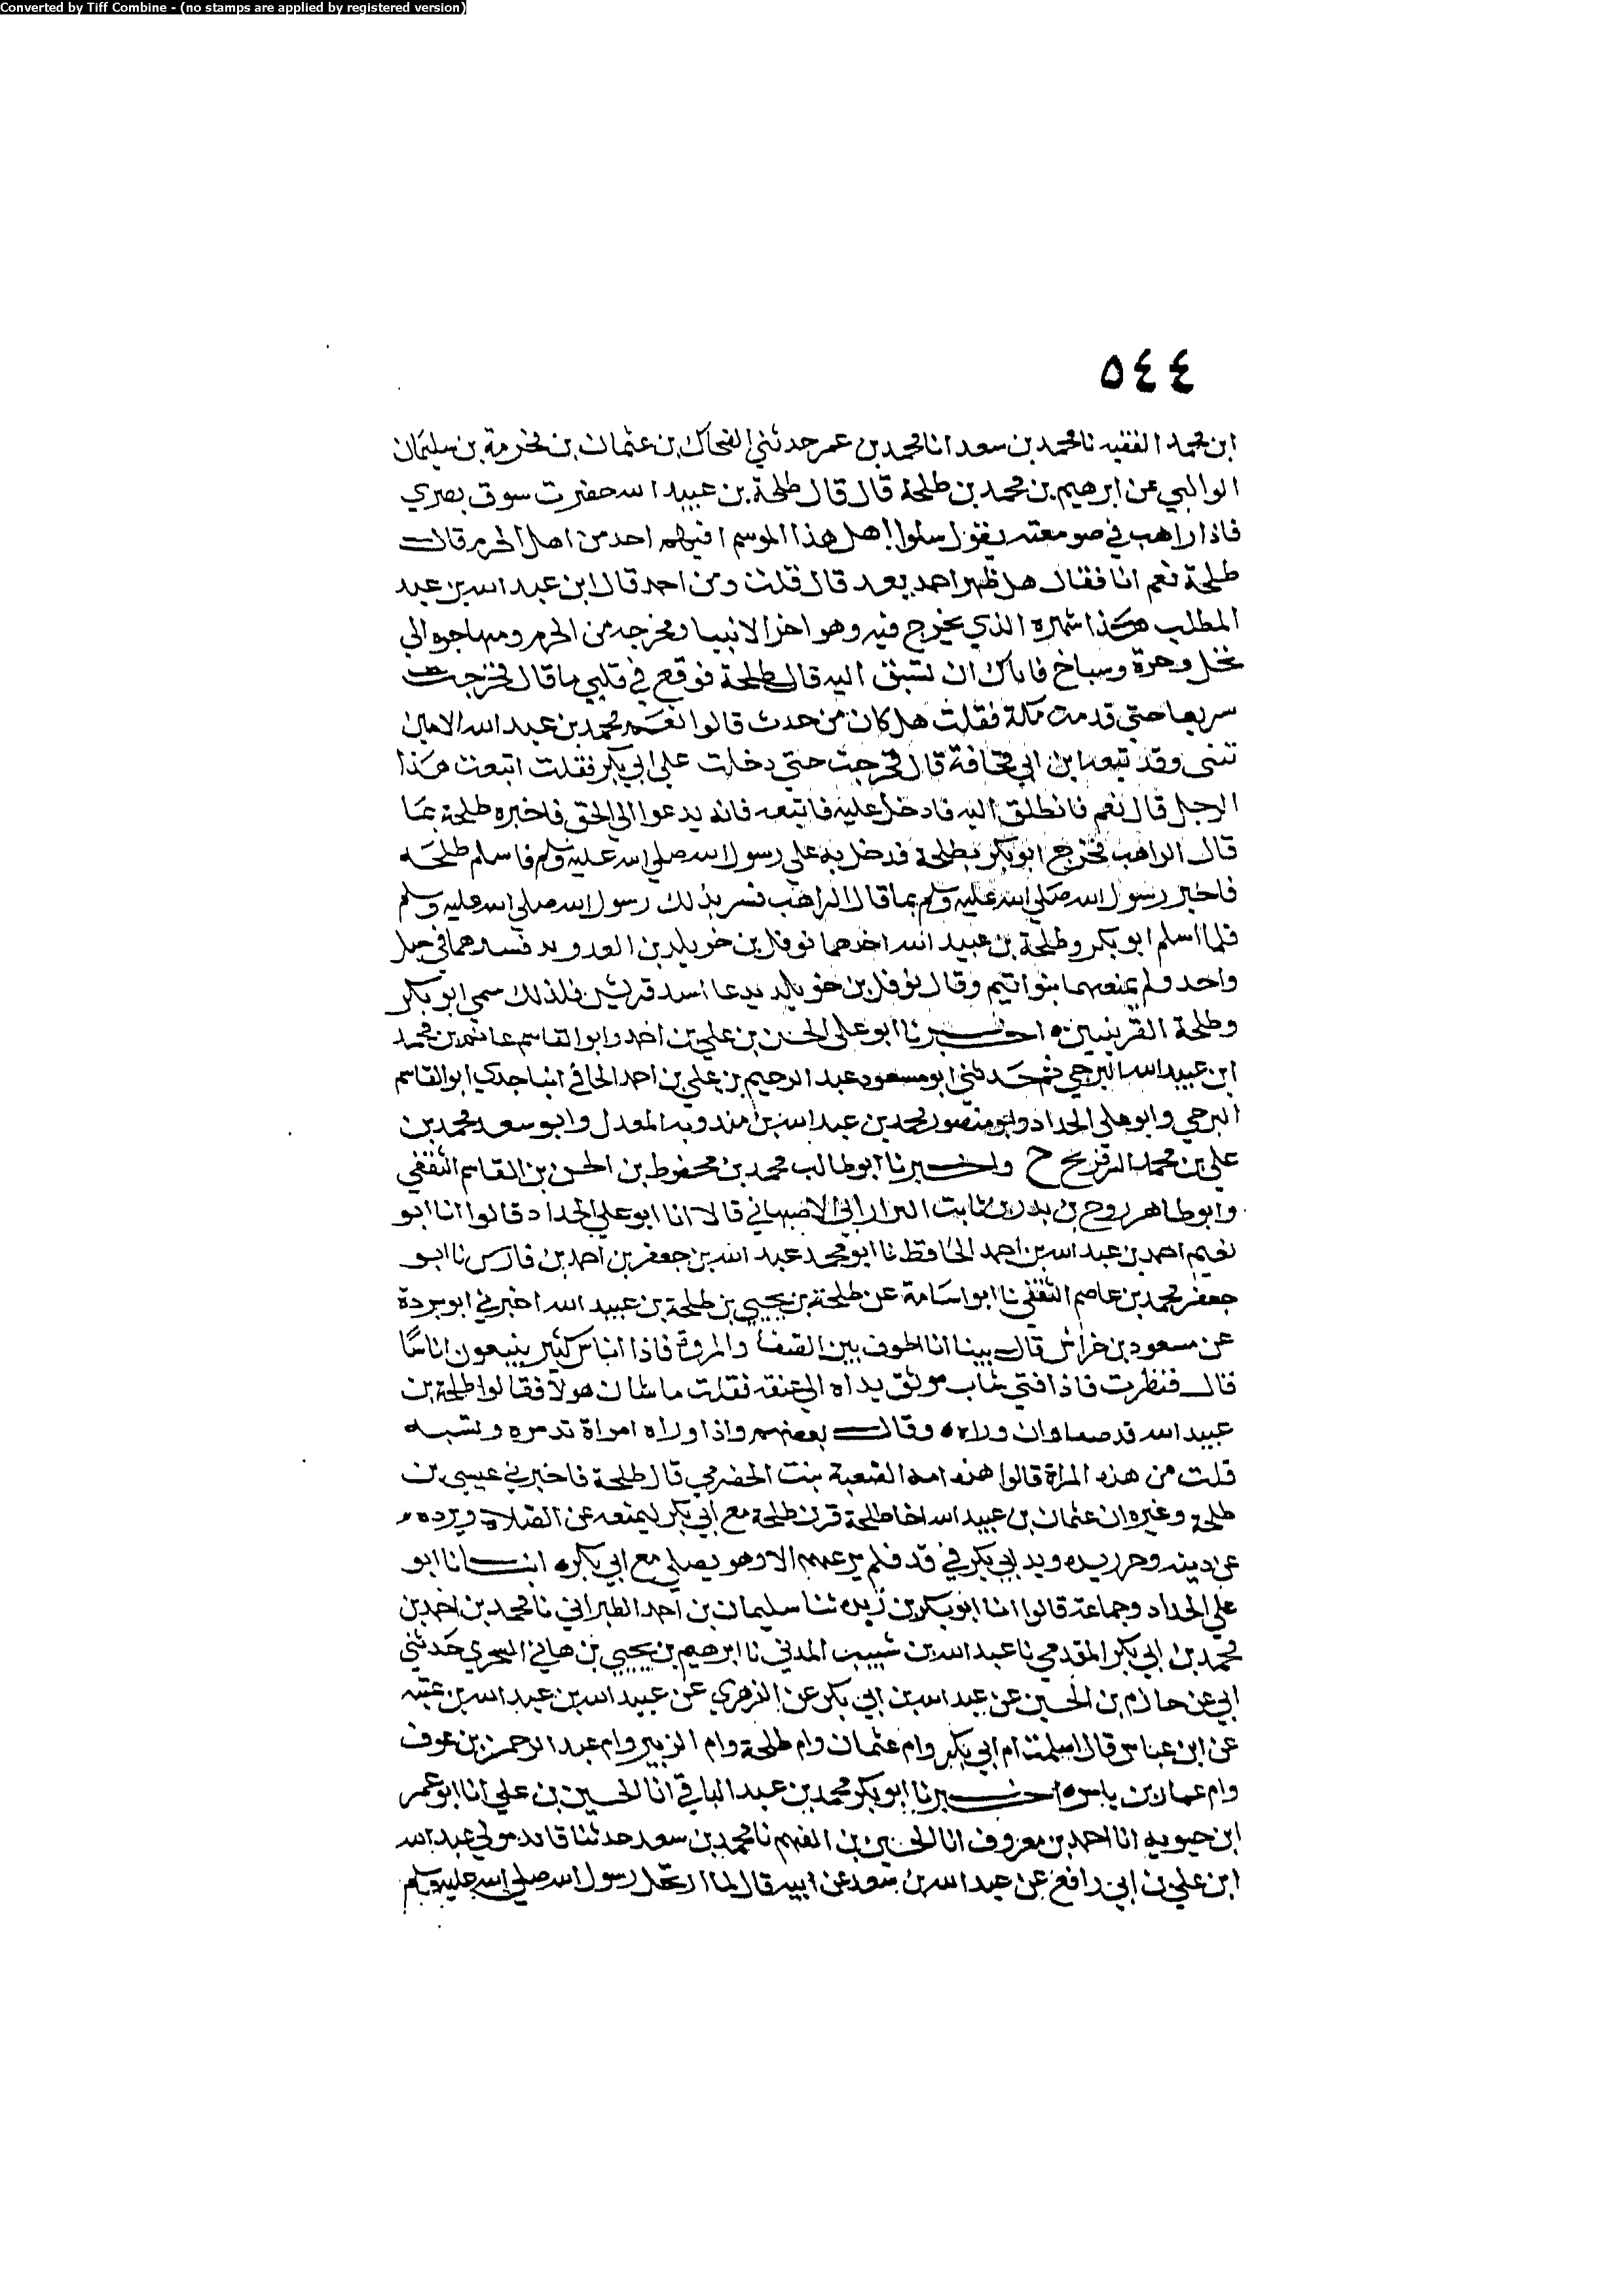 Converted by Tiff Combine - (no stamps are applied by registered version)
٥٤٤
ابن محمد الفقيه نا محمد بن سعد انا محمد بن عمر حدثني الضحاك بن عثمان بن مخرمة بن سليمان
الوالبي عن ابرهيم بن محمد بن طلحة قال قال طلحة بن عبيد الله حضرت سوق بصري
فاذا راهب في صومعته يقول سلوا اهل هذا الموسم افيهم احد من اهل الحرم قال
طلحة نعم انا فقال هل ظهر احمد بعد قال قلت ومن احمد قال ابن عبد الله بن عبد
المطلب هذا شهره الذي يخرج فيه وهو اخر الانبيا ومخرجه من الحرم ومهاجره الي
نخل وحرة وسباخ فاياك ان تسبق اليه قال طلحة فوقع في قلبي ما قال فخرجت
سريعا حتي قدمت مكة فقلت هل كان من حدث قالوا نعم محمد بن عبد الله الامين
تنبى وقد تبعه ابن ابي قحافة قال فخرجت حتي دخلت علي ابي بكر فقلت اتبعت هذا
الرجل قال نعم فانطلق اليه فادخل عليه فاتبعه فانه يدعوا الي الحق فاخبره طلحة بما
قال الراهب فخرج ابو بكر بطلحة فدخل به علي رسول الله صلي الله عليه وسلم فاسلم طلحة
فاخبر رسول الله صلي الله عليه وسلم بما قال الراهب فسر بذلك رسول الله صلي الله عليه وسلم
فلما اسلم ابو بكر وطلحة بن عبيد الله اخذهما نوفل بن خويلد بن العدويه فشدهما في حبل
واحد ولم يمنعهما بنوا تيم وقال نوفل بن خويلد يدعا اسد قريش فلذلك سمي ابو بكر
وطلحة القرينين ه اخبرنا ابو علي الحسن بن علي بن احمد وابو القاسم غانم بن محمد
ابن عبيد الله البرجي ثم حدثني ابو مسعود عبد الرحيم بن علي بن احمد الحافي انبا جدي ابو القاسم
البرجي وابو علي الحداد وابو منصور محمد بن عبد الله بن مندويه المعدل وابو سعد محمد بن
علي بن محمد ح واخبرنا ابو طالب محمد بن محفوظ بن الحسن بن القاسم الثقفي
وابو طاهر روح بن بدر بن ثابت الاصبهاني قالا انا ابو علي الحداد قالوا انا ابو
نعيم احمد بن عبد الله بن احمد الحافظ نا ابو محمد عبد الله بن جعفر بن احمد بن فارس نا ابو
جعفر محمد بن عاصم الثقفي نا ابو اسامة عن طلحة بن يحيي بن طلحة بن عبيد الله اخبرني ابو بردة
عن مسعود بن خراش قال بينا انا اطوف بين الصفا والمروة فاذا اناس كثير يتبعون اناسا
قال فنظرت فاذا فتي شاب موثق يداه الي عنقه فقلت ما شان هولا فقالوا طلحة بن
عبيد الله قد صبا وان وراه وقال بعضهم واذا وراه امراة تدمره وتسبه
قلت من هذه المراة قالوا هذه امه الصعبة بنت الحضرمي قال طلحة فاخبرني عيسي بن
طلحة وغيره ان عثمان بن عبيد الله اخا طلحة قرن طلحة مع ابي بكر ليمنعه عن الصلاة ويرده
عن دينه وحرر يده ويد ابي بكر في قد فلم يرعهم الا وهو يصلي مع ابي بكر ه انبانا ابو
علي الحداد وجماعة قالوا انا ابو بكر بن ريذه ثنا سليمان بن احمد الطبراني نا محمد بن احمد بن
محمد بن ابي بكر المقدمي نا عبد الله بن شبيب المدني نا ابرهيم بن يحيي بن هاني السجري حدثني
ابي عن حازم بن الحسين عن عبد الله بن ابي بكر عن الزهري عن عبيد الله بن عبد الله بن عتبه
عن ابن عباس قال اسلمت ام ابي بكر وام عثمان وام طلحة وام الزبير وام عبد الرحمن بن عوف
وام عمار بن ياسر ه اخبرنا ابو بكر محمد بن عبد الباقي انا الحسين بن علي انا ابو عمر
ابن حيويه انا احمد بن معروف انا الحسين بن الفهم نا محمد بن سعد حدثنا قائد مولي عبد الله
ابن علي بن ابي رافع عن عبد الله بن سعد عن ابيه قال لما ارتحل رسول الله صلي الله عليه وسلم